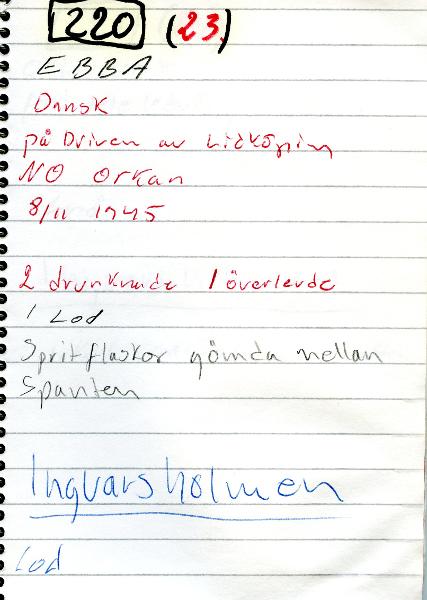 220 (23)
EBBA
Dansk
på Driven av Lidköping
NO Orkan
8/11 1945
2 drunknade 1 överlevde
1 Lod
Spritflaskor gömda mellan
Spanten
Ingvarsholmen
Lod